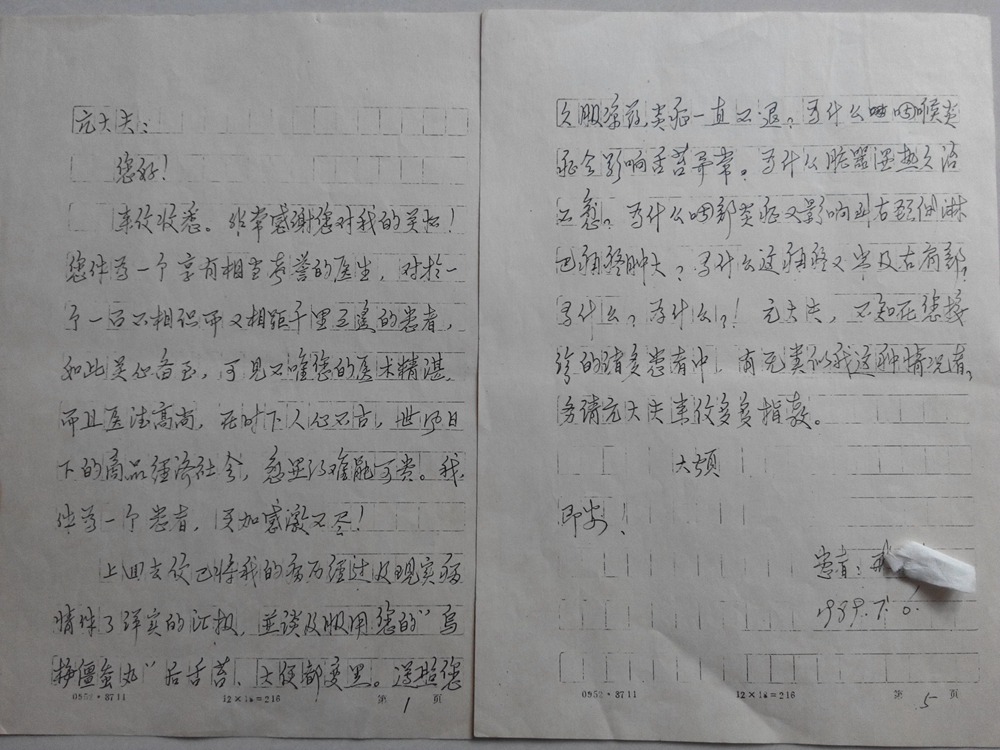 亢大夫：
您好！
来信收悉。非常感谢您对我的关怀！
您作为一个享有相当声誉的医生，对於一
个一百不相识而又相距千里之遥的患者，
如此关心备至，可见不唯您的医术精湛，
而且医德高尚，在时下人心不古，世风日
下的商品经济社会，愈显得难能可贵。我
作为一个患者，更加感激不尽！
上回去信已将我的病历经过及现实病
情作了详实的汇报，並谈及服用您的“乌
梅僵蚕丸”后舌苔、大便都变黑。遵照您
0952·8711
12×18=216
第 1 页
久服凉药炎症一直不退？为什么咽喉炎
症会影响舌苔异常。为什么脏器湿热久治
不愈？为什么咽部炎症又影响到右颈侧淋
巴
肿大？为什么这
又
及右肩部？
为什么？为什么？！亢大夫，不知在您接
诊的诸多患者中，有无类似我这种情况者，
务请亢大夫来信多多指教。
大颂
即安、
患者：
1989.7.6.
0952·8711
12×18=216
第 5 页